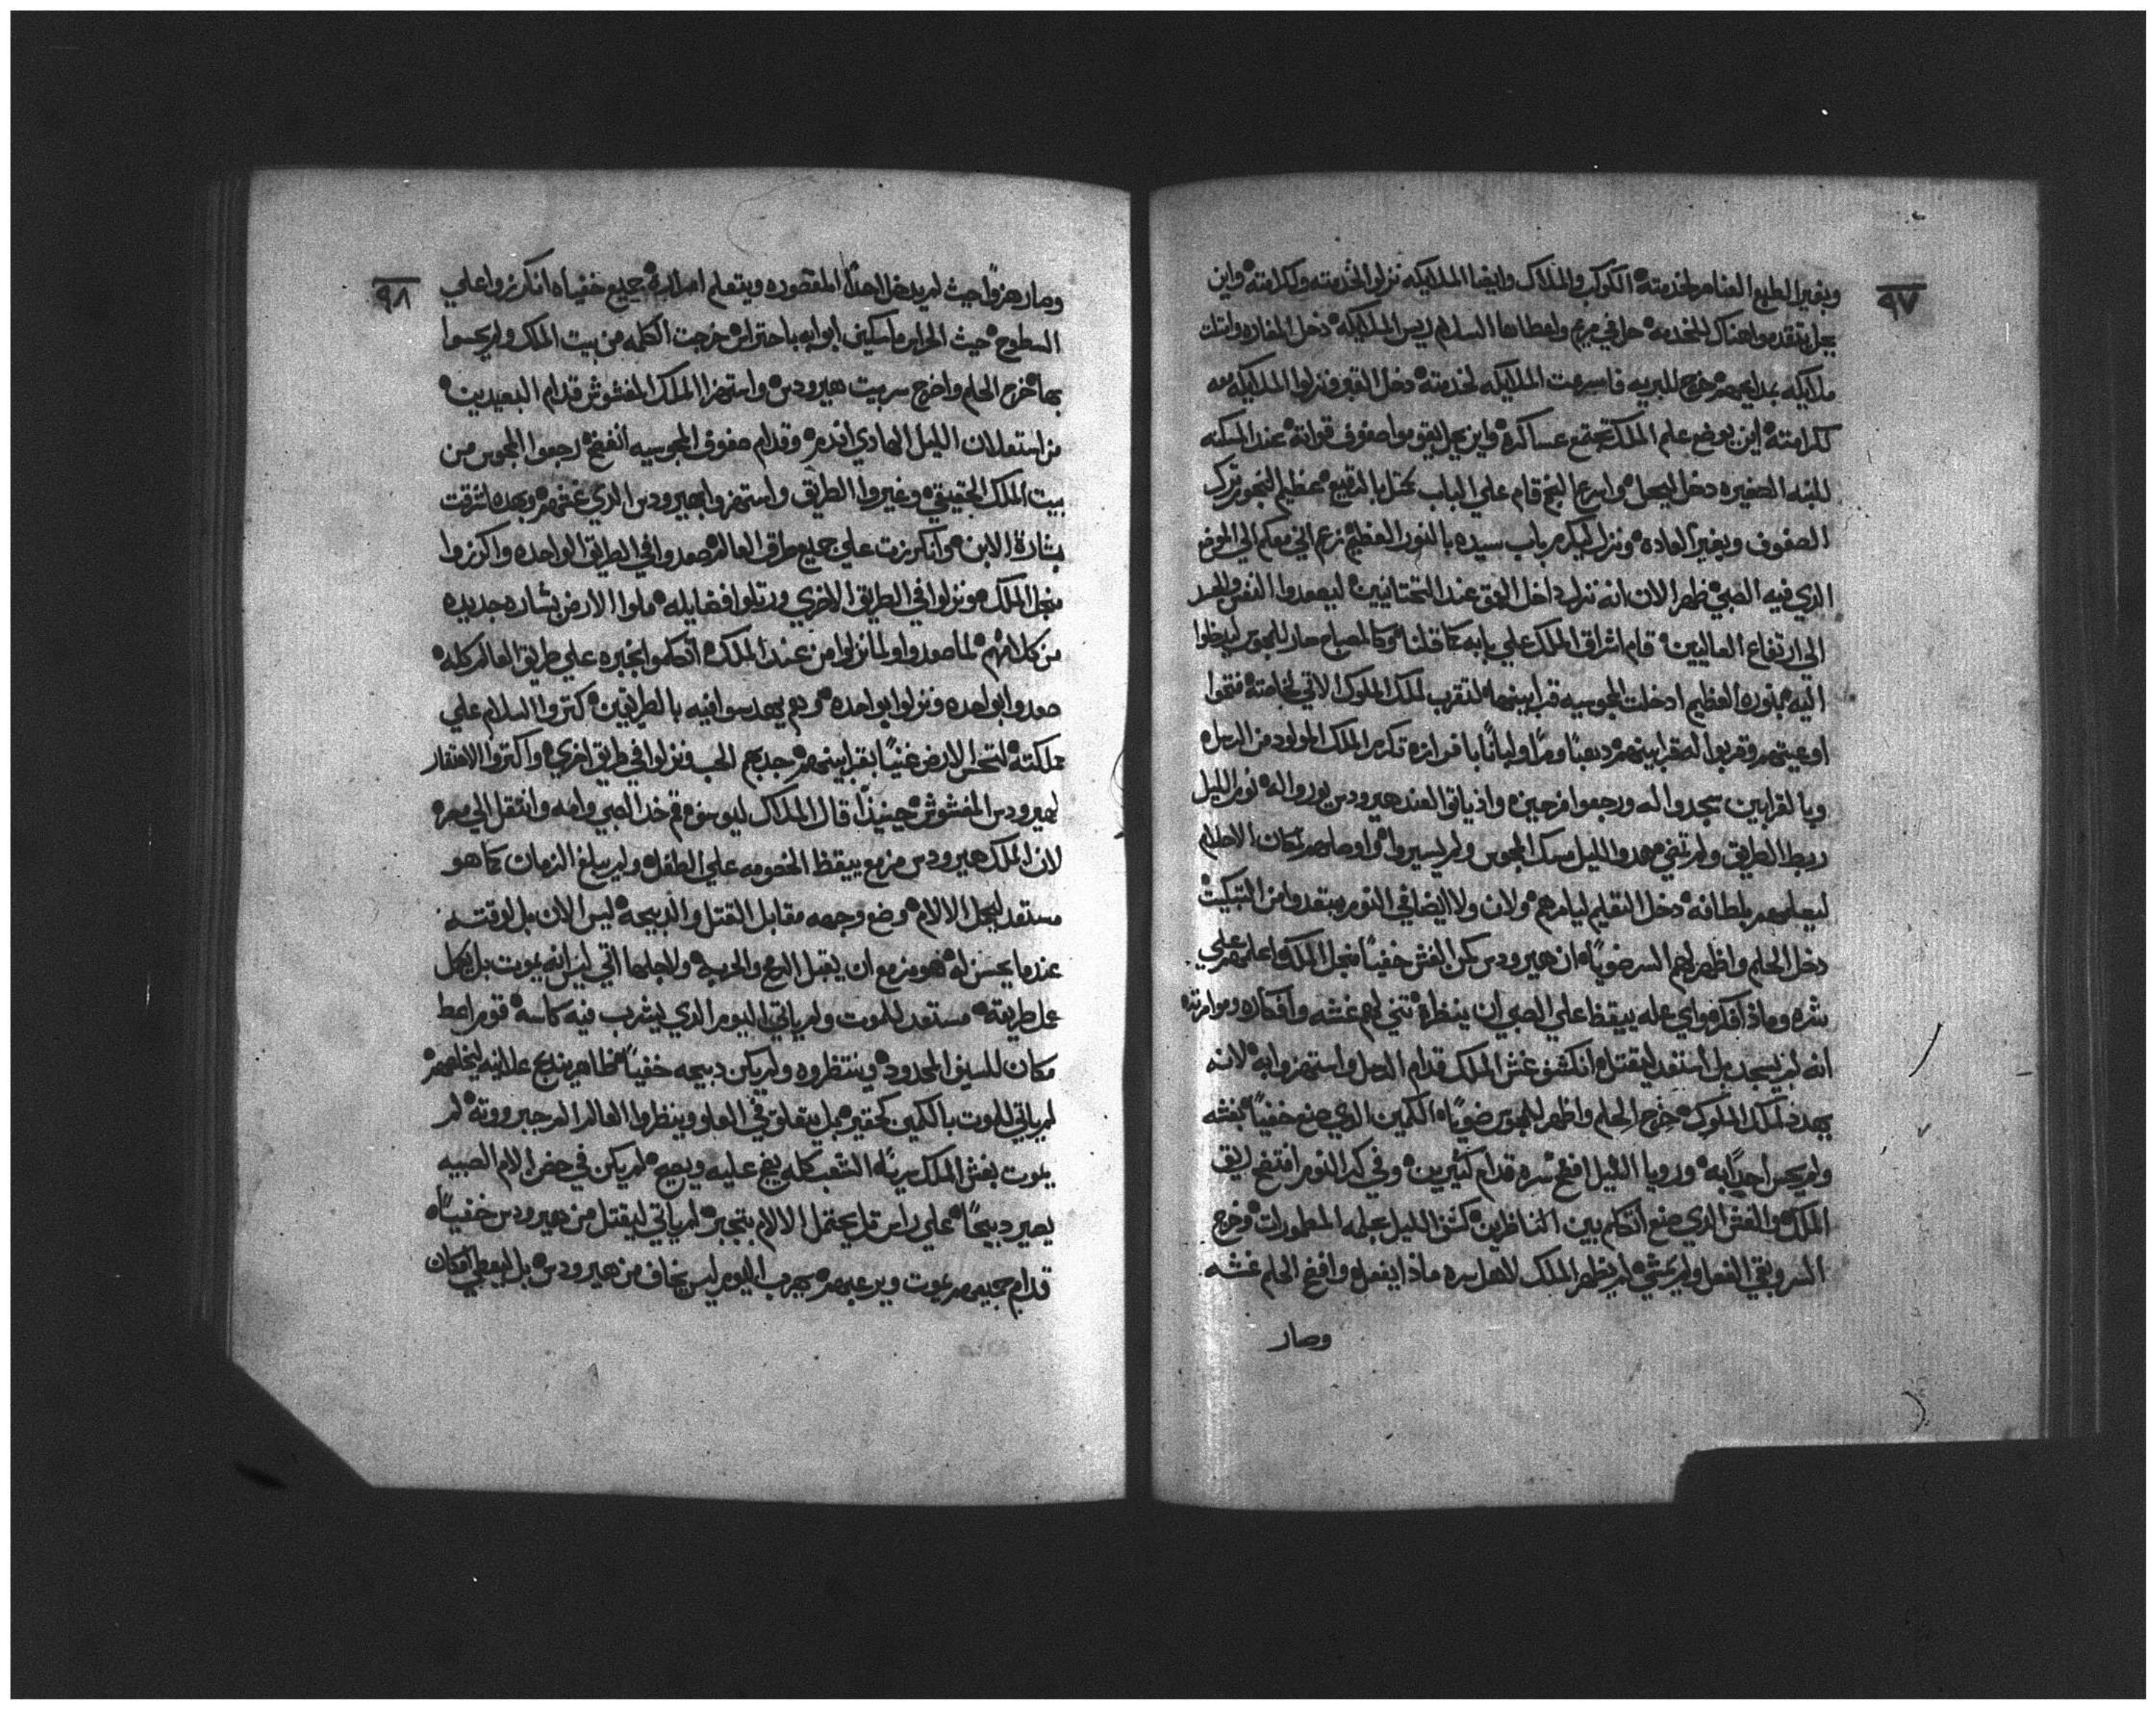 ٩٧
وبغير الطبع العناصر لخدمته الكوكب والملاك وايضا الملايكه نزلوا لخدمته وكرامته واين
يحل يتقدموا هناك للخدمه حل في مريم واعطاها السلام ريس الملايكه دخل المغاره واتت
ملايكه خرج للبريه فاسرعت الملايكه لخدمته دخل القبر ونزلوا الملايكه معه
لكرامته اين يوضع علم الملك تجتمع عساكره واين يحل يقوموا صفوف قواته عند المسكنه
للبنه الصغيره دخل ليحل واسرع النجم قام علي الباب عظيم النجوم ترك
الصفوف وبغير العاده ونزل ليكرم باب سيده بالنور العظيم الي الموضع
الذي فيه الصبي ظهر الان انه نزل داخل العمق عند التحتانيين ليصعدوا النفس والجسد
الي ارتفاع العاليين قام اشراق الملك علي بابه كما قلنا وكالمصباح صار للمجوس ليدخلوا
اليه بنوره العظيم ادخلت المجوسيه قرابينها لتقرب لملك الملوك الاتي لخاصته فتحوا
اوعيتهم وقربوا له قرابينهم دهبا ومرا ولبانا تكرم الملك المولود من
وبالقرابين سجدوا له ورجعوا فرحين واذ ياتوا لعند هيرودس
ربط الطريق الليل مسك المجوس ولم يسيروا مكان الاحلام
ليعلمهم بلطافه دخل التعليم ليامرهم ولان ولا ايضا في النوم يبتعدوا من التبكيت
دخل الحلم واظهر لهم السر ضويا ان هيرودس كمن الغش خفيا من اجل الملك اعلمهم علي
شره وماذا افكر واي عله ييقظ علي الصبي ان ينظره غشه وافكاره وموامرته
انه لم يسجد بل استعد ليقتله انكشف غش الملك قدام الرسل واستهزوا به لانه
يهدد لملك الملوك خرج الحلم واظهر للمجوس ضويا الكمين الذي صنع خفيا بغشه
ولم يحس احدا به ورويا الليل افضح سره قدام كتيرين وفي النوم افتضح
الملك والغش الذي صنع اتكلم بين الناظرين كشف الليل المطمورات وخرج
السر وبقي الفعل ولم يمشي لم يظهر الملك لاهل سره ماذا يفعله وافضح الحلم غشه
وصار
٩٨
وصار هزوا حيث لم يدخل احدا المقصوره ويتعلم اسراره جميع خفياه انكرزوا علي
السطوح حيث الحراس ماسكين ابوابه باحتراس خرجت الكلمه من بيت الملك ولم يحسوا
بها خرج الحلم واخرج سر بيت هيرودس واستهزا الملك المغشوش قدام البعيدين
من استعلان الليل الهادي وقدام صفوف المجوسيه انفضح رجعوا المجوس من
بيت الملك الحقيقي وغيروا الطريق واستهزوا بهيرودس الذي غشهم وبهده اشرقت
بشارة الابن وانكرزت علي جميع طرق العالم صعدوا في الطريق الواحده واكرزوا
من اجل الملك ونزلوا في الطريق الاخري ورتلوا فضايله ملوا الارض بشاره جديده
من كلامهم لما صعدوا ولما نزلوا من عند الملك اتكلموا بخبره علي طريق العالم كله
صعدوا بواحده ونزلوا بواحده فيه بالطريقين كتروا السلام علي
مملكته الارض غنيا بقرابينهم جدبهم الحب ونزلوا في طريق اخري واكتروا الاحتقار
لهيرودس المغشوش حينيذا قال الملاك ليوسف قم خد الصبي وامه وانتقل الي مصر
لان الملك هيرودس مزمع ييقظ الخصومه علي الطفل ولم يبلغ الزمان كما هو
مستعد ليحمل الالام وضع وجهه مقابل القتل والدبيحه ليس الان بل لوقته
عندما يحسن له هو مزمع ان يقبل الرمح والحربه ولاجلها اتي ليس انه يموت بل يكمل
عمل طريقه مستعد للموت ولم ياتي اليوم الذي يشرب فيه كاسه قوم اعط
مكان للسيف المحدود وينتظروه ولم يكن دبيحه خفيا ظاهر يندبح علانيه ليخلصهم
لم ياتي للموت بالكمين كحقير بل يتعلق في العلو وينظرها العالم جبرووته لم
يموت بغش الملك سرا الشعب كله يضج عليه ويصيح لم يكن في حضن الام الصبيه
يصير دبيحا علي راس يحتمل الالام بتجبر لم ياتي ليقتل من هيرودس خفيا
قدام جميعهم يموت ويرعبهم يهرب اليوم ليس يخاف من هيرودس بل ليعطي امكان